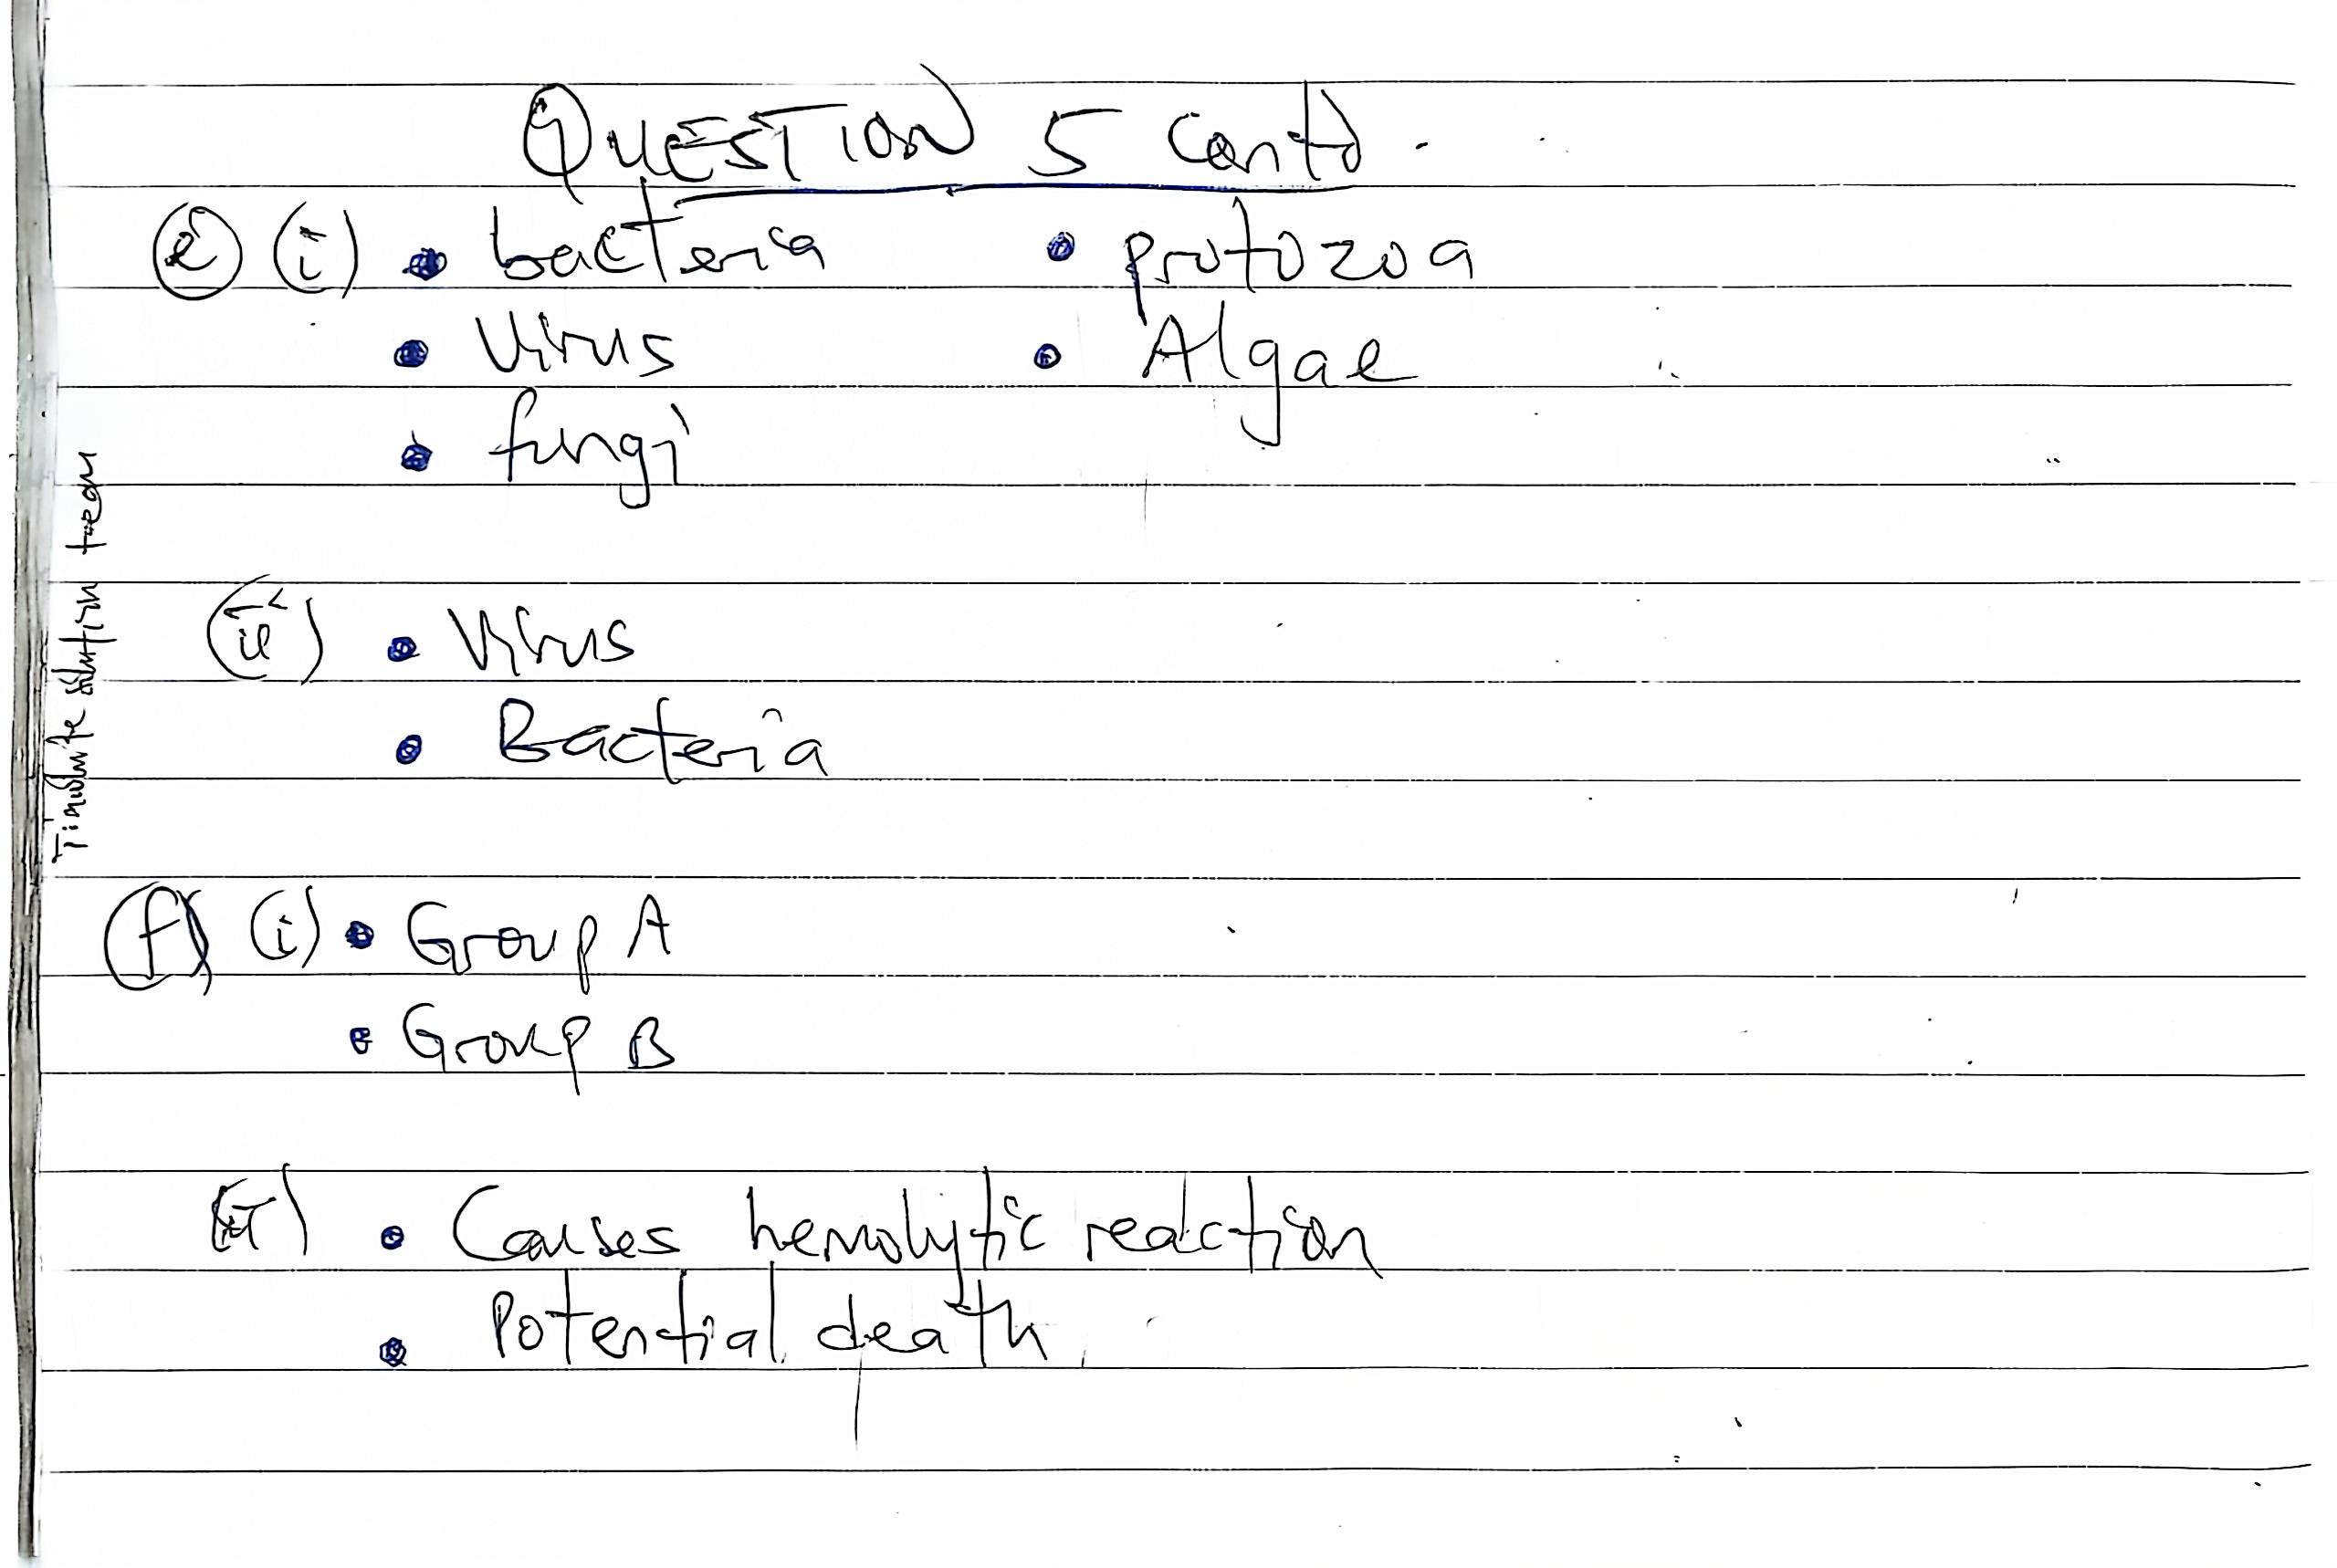 QUESTION 5 Contd.
(e) (i) • bacteria • protozoa
• Virus • Algae
• fungi
(ii) • Virus
• Bacteria
(f) (i) • Group A
• Group B
(ii) • Causes hemolytic reaction
• Potential death
solution team